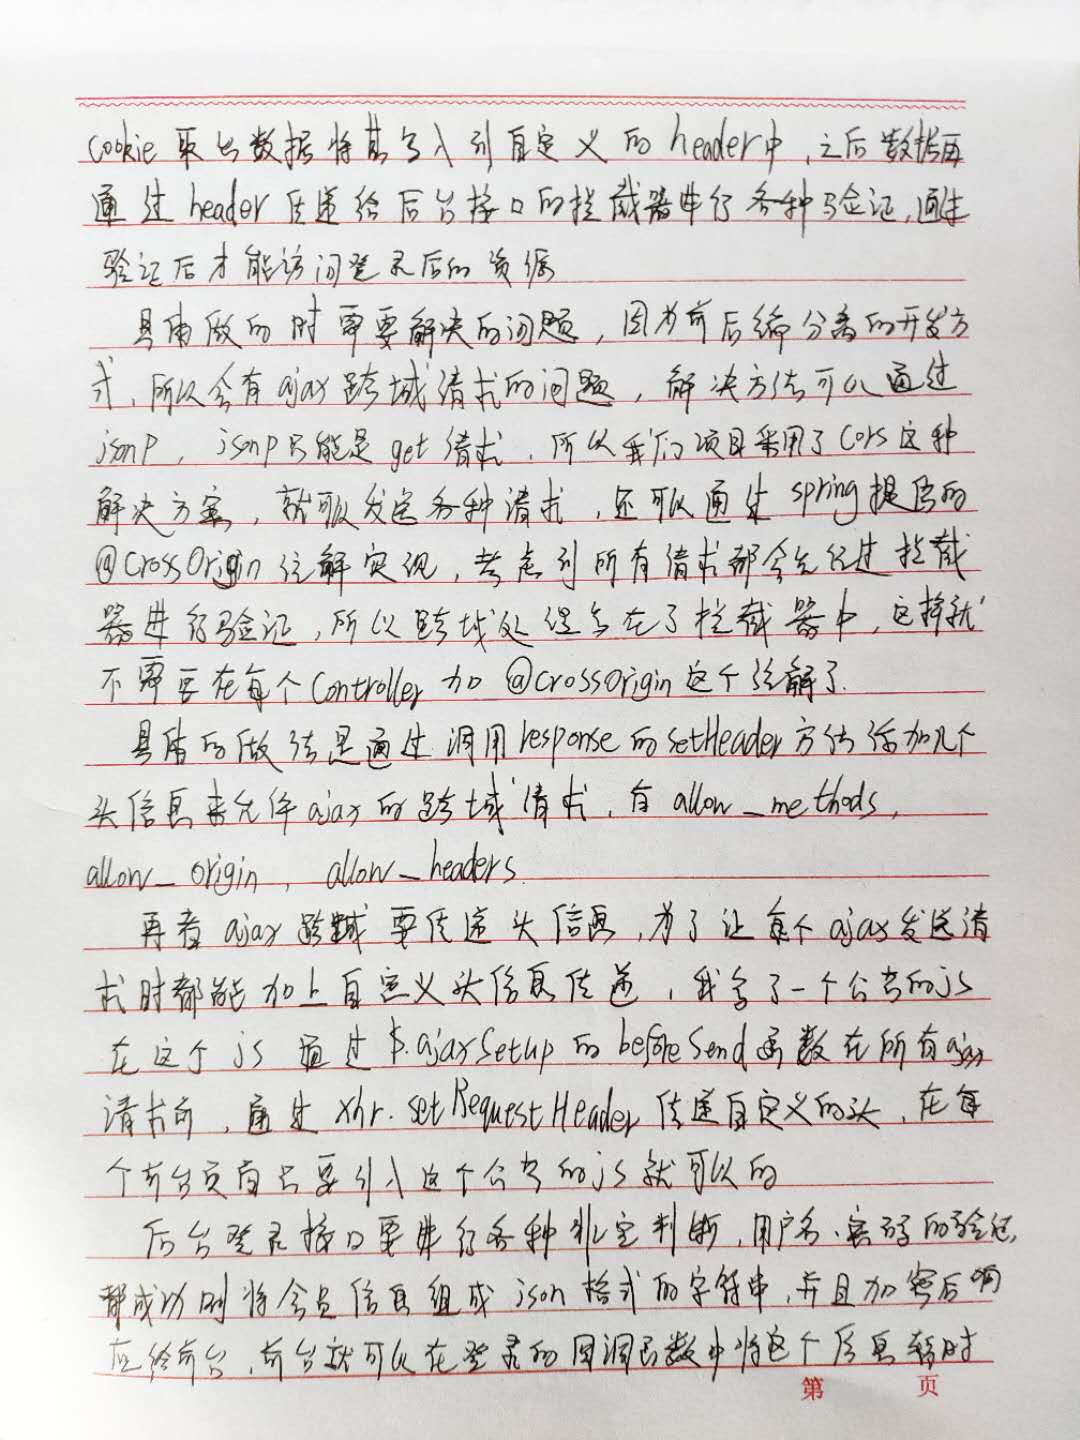 cookie取出数据将其写入到自定义的header中,之后数据再
通过header传递给后台接口的拦截器进行各种验证,通过
验证后才能访问登录后的资源
具体做的时需要解决的问题,因为前后端分离的开发方
式,所以会有ajax跨域请求的问题,解决方法可以通过
jsonp,jsonp只能是get请求,所以我们项目采用了cors这种
解决方案,就可以发送各种请求,还可以通过spring提供的
@CrossOrigin注解实现,考虑到所有请求都会先经过拦截
器进行验证,所以跨域处理写在了拦截器中,这样就
不需要在每个Controller加@CrossOrigin这个注解了.
具体的做法是通过调用response的setHeader方法添加几个
头信息来允许ajax的跨域请求,有allow_methods,
allow_origin, allow_headers.
再者ajax跨域要传递头信息,为了让每个ajax发送请
求时都能加上自定义头信息传递,我写了一个公共的js
在这个js通过$.ajaxSetup的beforeSend函数在所有ajax
请求前,通过xhr.setRequestHeader传递自定义的头,在每
个前台页面只要引入这个公共的js就可以的
后台登录接口要进行各种非空判断,用户名、密码的验证,
都成功则将会员信息组成json格式的字符串,并且加密后响
应给前台,前台就可以在登录的回调函数中将这个信息暂时
第 页